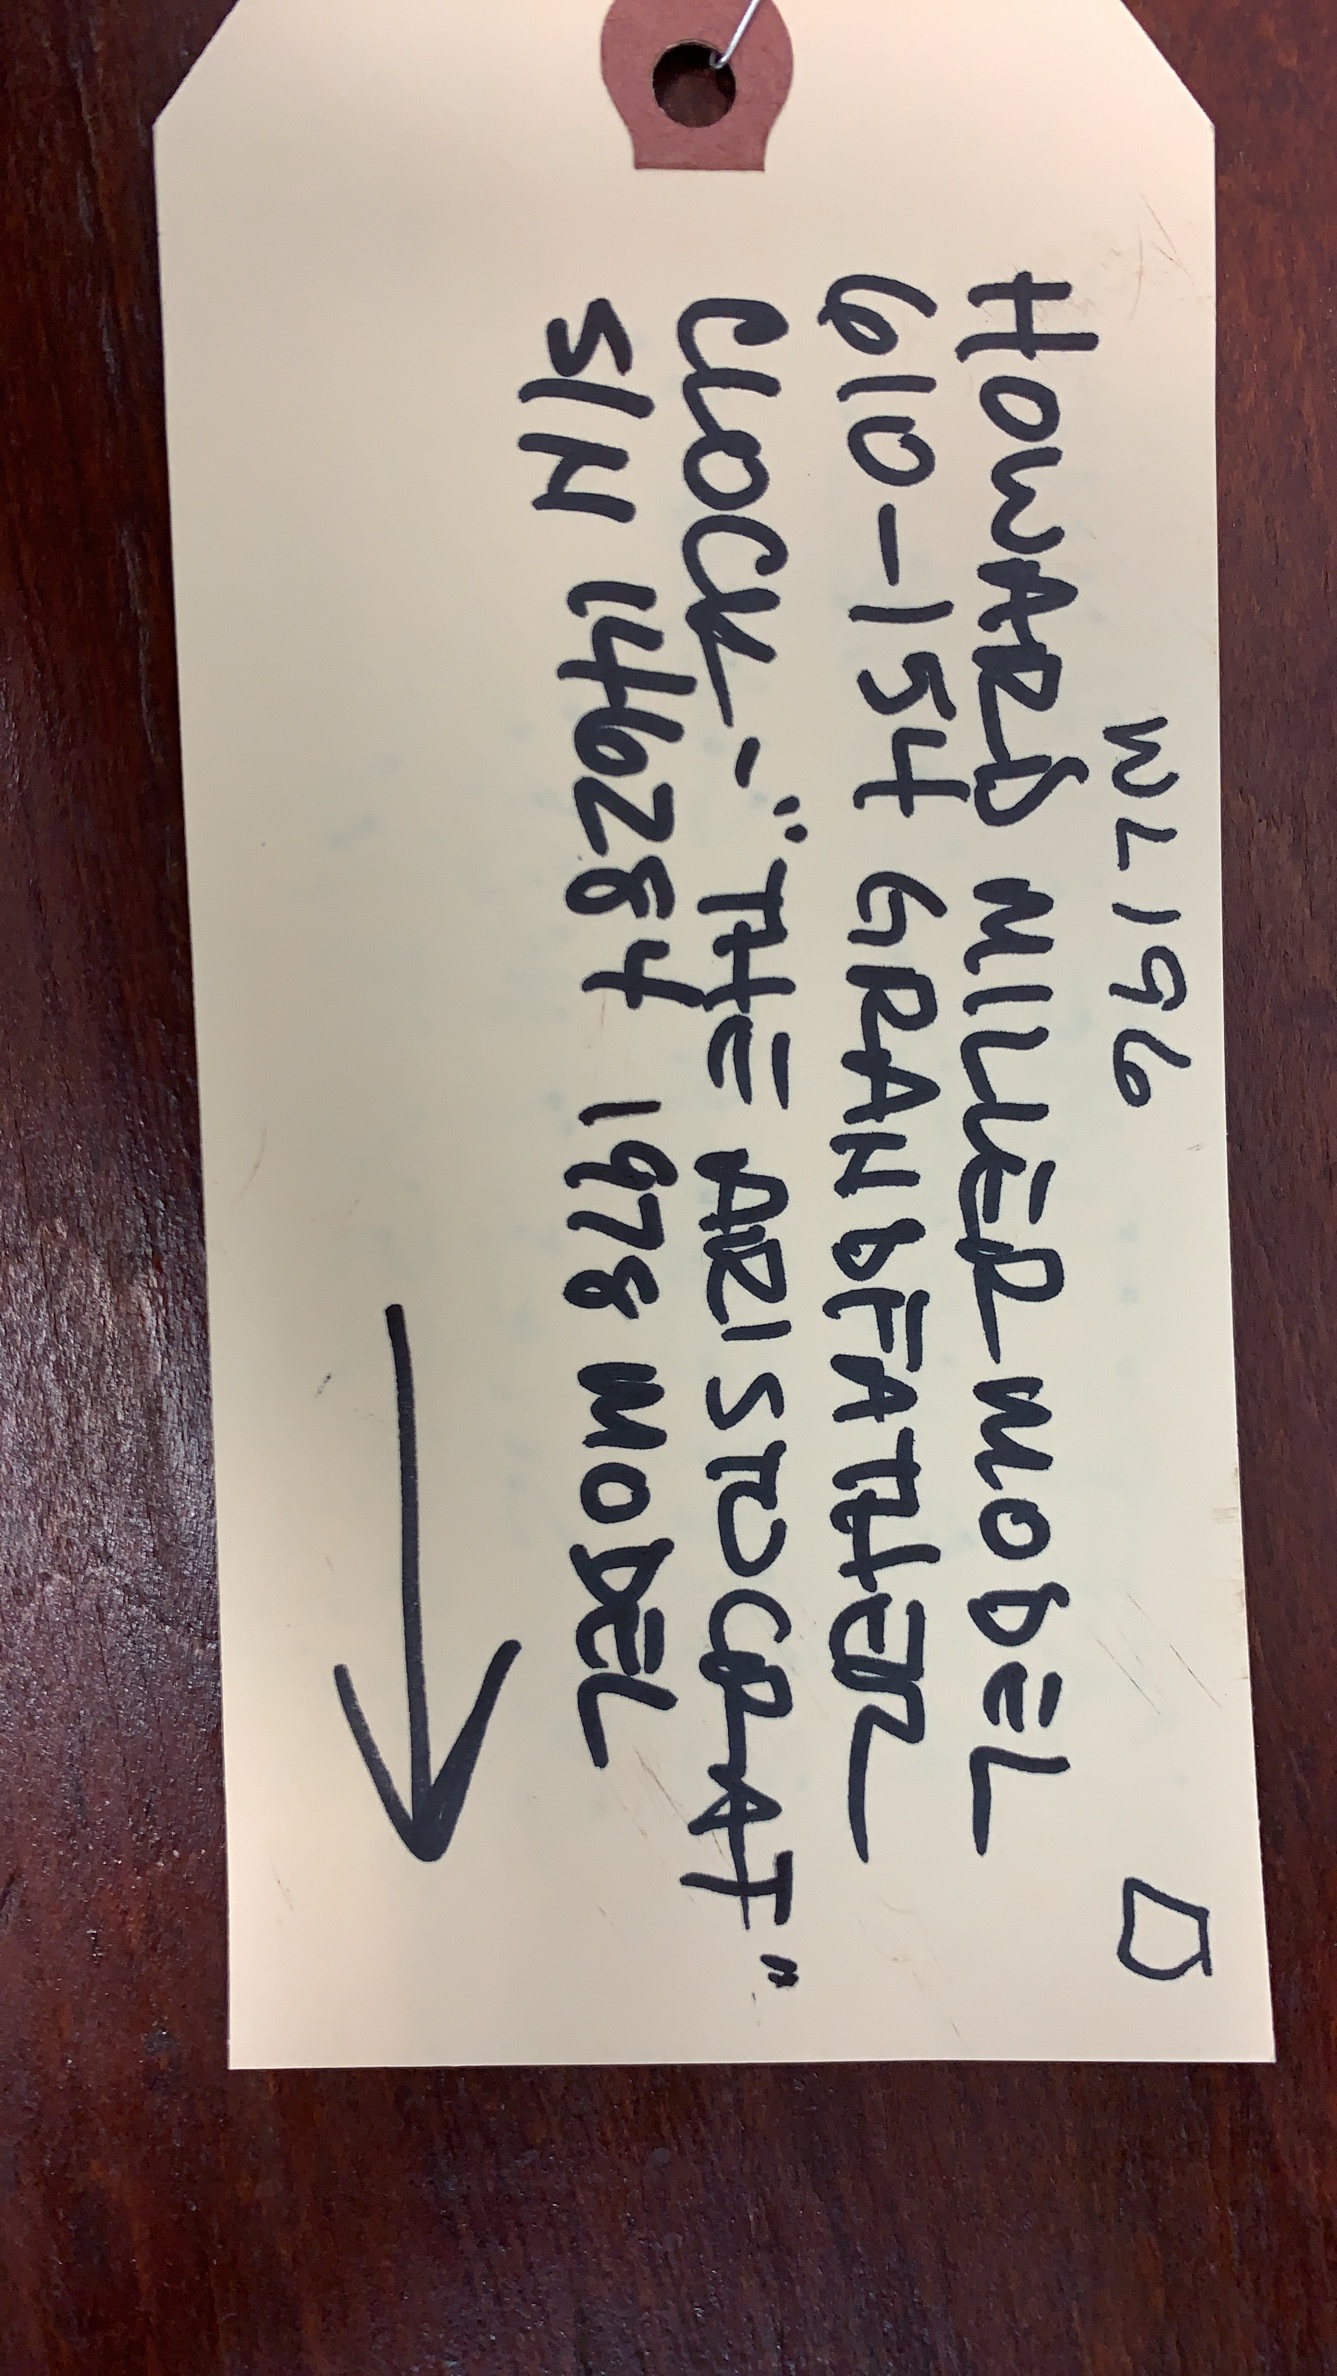 WL196
HOWARD MILLER MODEL
610-154 GRANDFATHER
CLOCK - "THE ARISTOCRAT"
S/N 146284 1978 MODEL